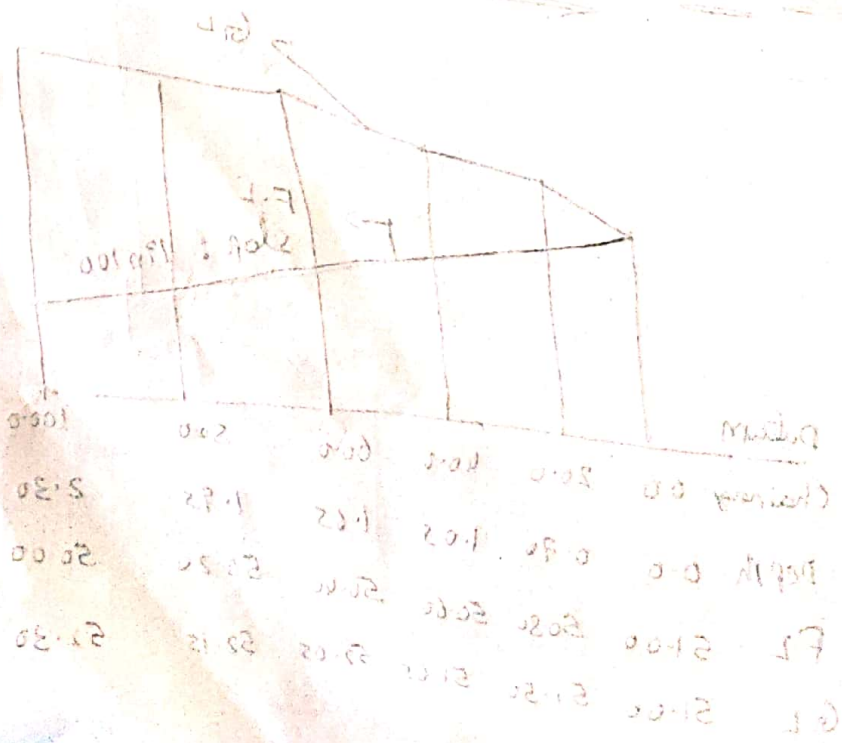 GL
F.L
Slope 1 in 100
Datum
Chainage 0.0 20.0 40.0 60.0 80.0 100.0
Depth 0.0 0.70 1.05 1.65 1.95 2.30
FL 51.00 50.80 50.60 50.40 50.20 50.00
GL 51.00 51.50 51.65 52.05 52.15 52.30